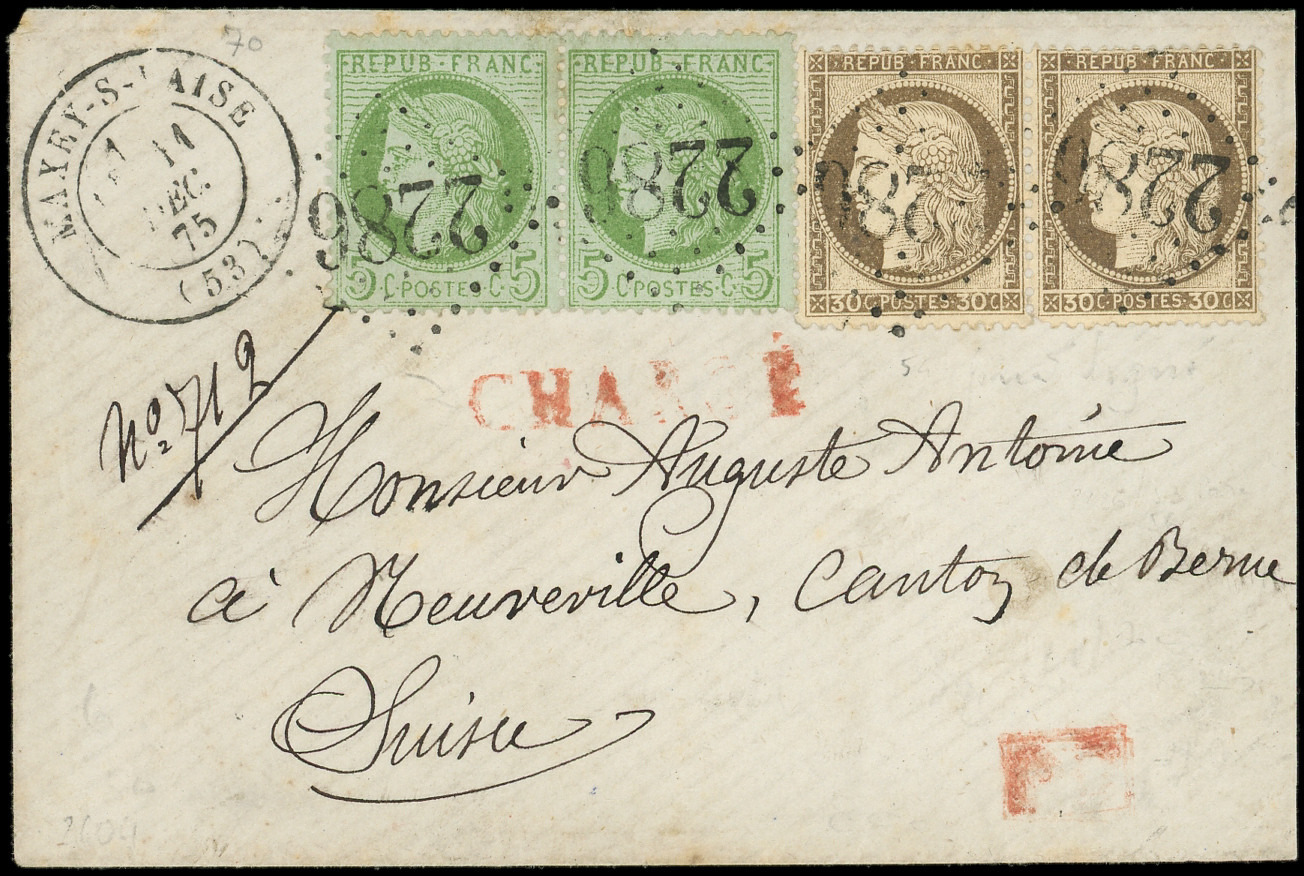 70
MAXEY-S-VAISE
11
DEC.
75
(53)
REPUB·FRANC
5 C·POSTES·C·5
REPUB·FRANC·
5 C·POSTES·C·5
REPUB·FRANC·
30C·POSTES·30C
REPUB·FRANC·
30C·POSTES·30C
2286
2286
2286
2286
No. 712
CHARGÉ
Monsieur Auguste Antoine
à Neuveville, Canton de Berne
Suisse